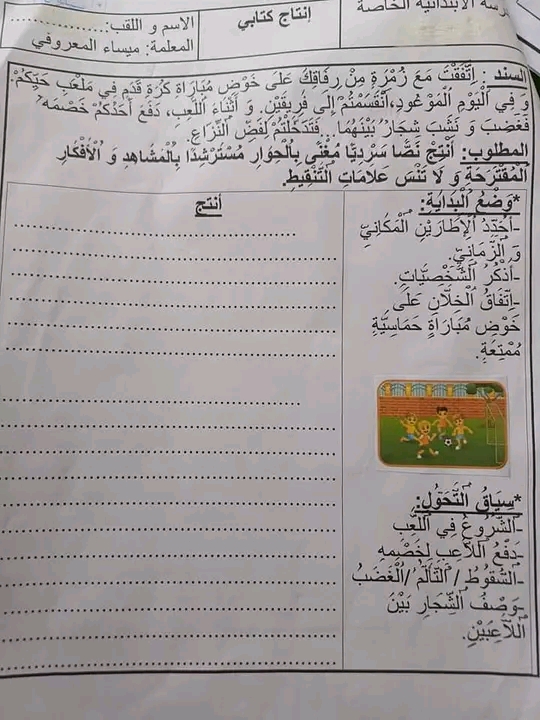 الابتدائية الخاصة
إنتاج كتابي
الاسم و اللقب:..............
المعلمة: ميساء المعروفي
السند : اِتَّفَقْتَ مَعَ زُمْرَةٍ مِنْ رِفَاقِكَ عَلَى خَوْضِ مُبَارَاةِ كُرَةِ قَدَمٍ فِي مَلْعَبِ حَيِّكُمْ.
وَ فِي اَلْيَوْمِ اَلْمَوْعُودِ، اِنْقَسَمْتُمْ إِلَى فَرِيقَيْنِ. وَ أَثْنَاءَ اَللَّعِبِ، دَفَعَ أَحَدُكُمْ خَصْمَهُ
فَغَضِبَ وَ نَشَبَ شِجَارٌ بَيْنَهُمَا ...فَتَدَخَّلْتُمْ لِفَضِّ اَلنِّزَاعِ.
المطلوب: أَنْتِجْ نَصًّا سَرْدِيًّا مُغْنًى بِالْحِوَارِ مُسْتَرْشِدًا بِالْمَشَاهِدِ وَ اَلْأَفْكَارِ
اَلْمُقْتَرَحَةِ وَ لَا تَنْسَ عَلَامَاتِ اَلتَّنْقِيطِ.
*وَضْعُ اَلْبِدَايَةِ:
-أُحَدِّدُ اَلْإِطَارَيْنِ اَلْمَكَانِيَّ
وَ اَلزَّمَانِيَّ.
-أَذْكُرُ اَلشَّخْصِيَّاتِ.
-اِتِّفَاقُ اَلْخِلَّانِ عَلَى
خَوْضِ مُبَارَاةٍ حَمَاسِيَّةٍ
مُمْتِعَةٍ.
*سِيَاقُ اَلتَّحَوُّلِ:
-اَلشُّرُوعُ فِي اَللَّعِبِ
-دَفْعُ اَللَّاعِبِ لِخَصْمِهِ
-السُّقُوطُ / اَلتَّأَلُّمُ /اَلْغَضَبُ
-وَصْفُ اَلشِّجَارِ بَيْنَ
اَللَّاعِبَيْنِ.
أنتج